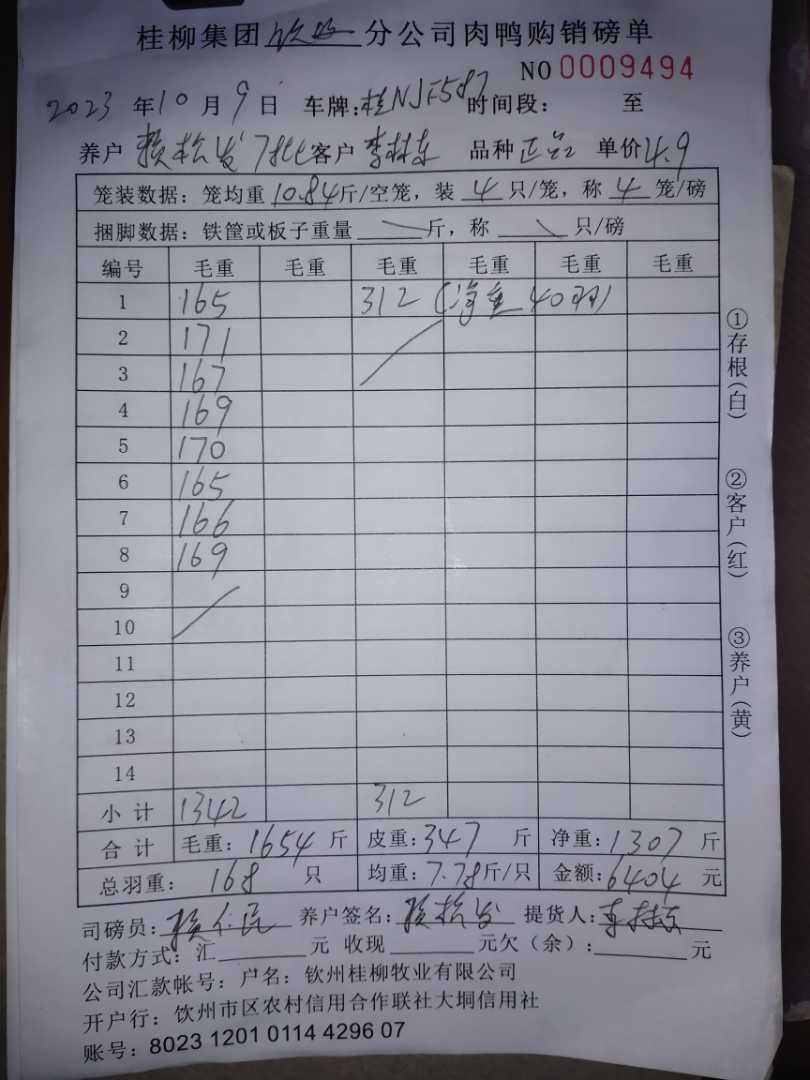 桂柳集团钦州分公司肉鸭购销磅单
NO 0009494
2023 年 10 月 9 日 车牌: 桂NJF587 时间段: 至
养户 赖松发 客户 李林东 品种 单价 4.9
笼装数据: 笼均重 10.84 斤/空笼, 装 4 只/笼, 称 4 笼/磅
捆脚数据: 铁筐或板子重量 斤, 称 只/磅
编号 毛重 毛重 毛重 毛重 毛重 毛重
1 165 312 (净重 40羽)
2 171
3 167
4 169
5 170
6 165
7 166
8 169
9
10
11
12
13
14
小计 1342 312
合计 毛重: 1654 斤 皮重: 347 斤 净重: 1307 斤
总羽重: 168 只 均重: 7.78 斤/只 金额: 6404 元
司磅员: 养户签名: 赖松发 提货人: 李林东
付款方式: 汇 元 收现 元欠(余): 元
公司汇款帐号: 户名: 钦州桂柳牧业有限公司
开户行: 钦州市区农村信用合作联社大垌信用社
账号: 8023 1201 0114 4296 07
①存根(白)
②客户(红)
③养户(黄)